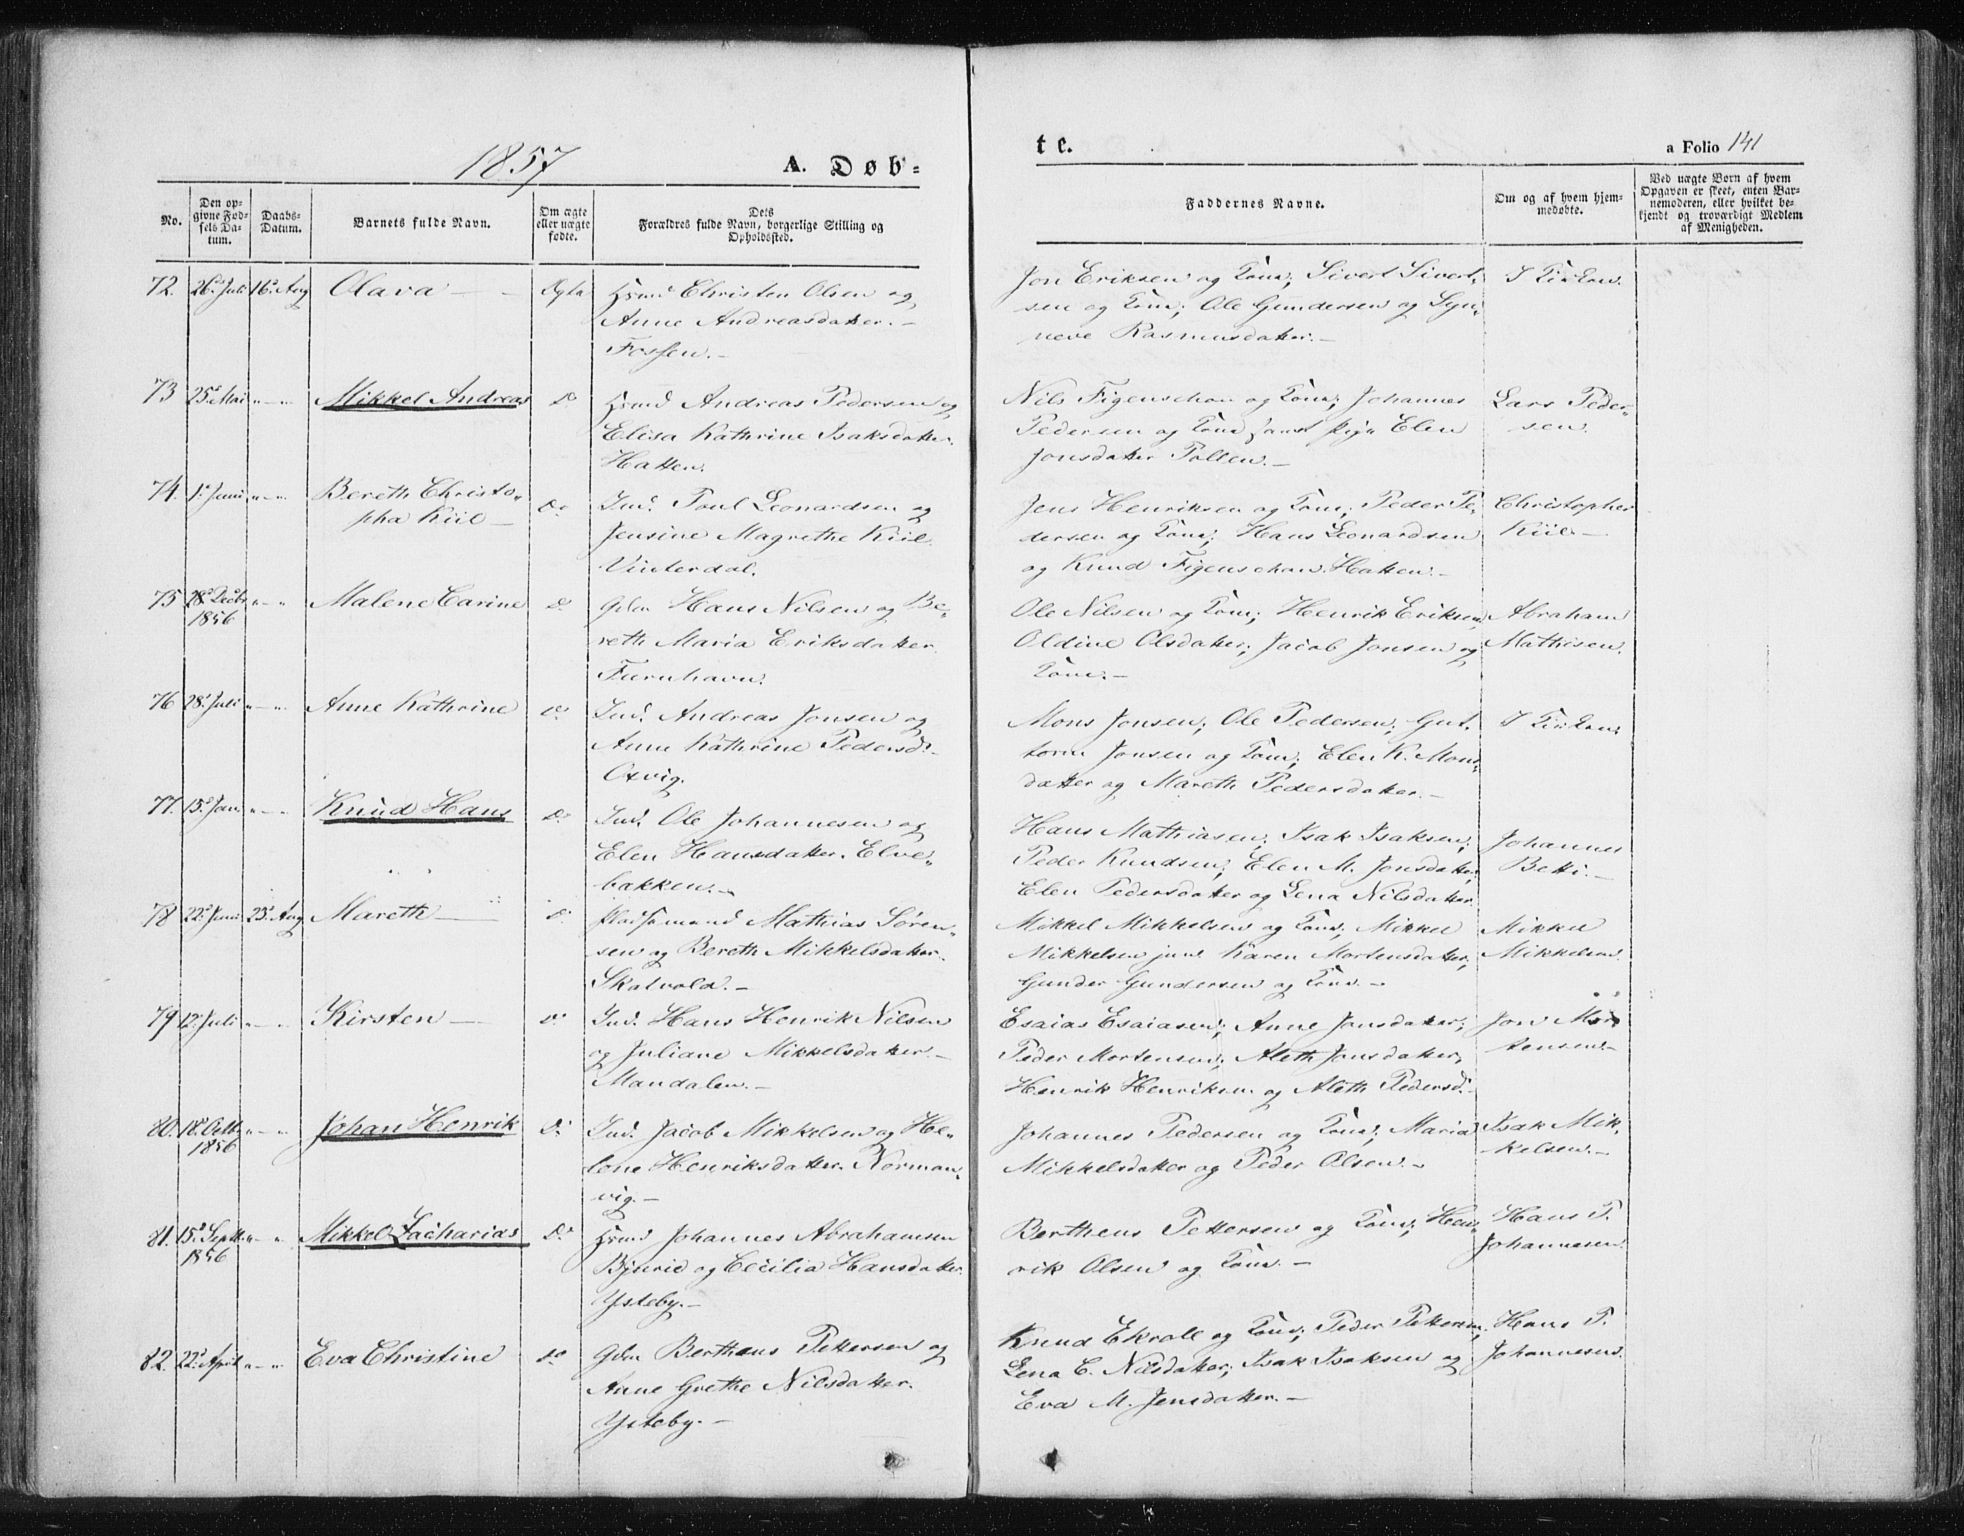 1857
A. Døb-
te.
a Folio 141
No.
Den op-
givne Fød-
sels Da-
tum.
Daabs-
Datum.
Barnets fulde Navn.
Om ægte
eller uægte
fødte.
Dets
Forældres fulde Navn, borgerlige Stilling og
Opholdssted.
Faddernes Navne.
Om og af hvem hjem-
medøbte.
Ved uægte Børn af hvem
Opgaven er skeet, enten Bar-
nemoderen, eller hvilket be-
kjendt og troværdigt Medlem
af Menigheden.
72. 26de Juli 16de Aug Olava — Ægte Hsmd Christen Olsen og
Anne Andreasdatter. –
Fossen. –
Jon Eriksen og Kone; Sivert Sivert-
sen og Kone; Ole Gundersen og Syn-
neve Rasmusdatter. –
I Kirken.
73 25de Mai " — " Mikkel Andreas Do Hsmd Andreas Pedersen og
Elisa Kathrine Isaksdatter.
Hatten.
Nils Figenschou og Kone; Johannes
Pedersen og Kone samt Pige Elen
Jonsdatter Pollen. –
Lars Peder-
sen.
74. 1ste Juni " — " Bereth Christo-
pha Kiil – Do Ind. Poul Leonardsen og
Jensine Magrethe Kiil.
Vinterdal.
Jens Henriksen og Kone; Peder Pe-
dersen og Kone; Hans Leonardsen
og Knud Figenschou. Hatten. –
Christopher
Kiil. –
75 28de Decbr
1856 " — " Malene Carine Do Gdm Hans Nilsen og Be-
reth Maria Eriksdatter.
Furuhavn.
Ole Nilsen og Kone; Henrik Eriksen,
Oldine Olsdatter; Jacob Jonsen og
Kone. –
Abraham
Mathisen.
76 28de Juli " — " Anne Kathrine Do Ind. Andreas Jonsen og
Anne Kathrine Pedersd. –
Oxvig.
Mons Jonsen; Ole Pedersen; Gut-
torm Jonsen og Kone; Elen K. Mons-
datter og Mareth Pedersdatter. –
I Kirken.
77. 15de Juni " — " Knud Hans Do Ind. Ole Johannesen og
Elen Hansdatter. Elve-
bakken. –
Hans Mathiasen; Isak Isaksen;
Peder Knudsen; Elen M. Jonsdatter;
Elen Pedersdatter og Lena Nilsdatter
Johannes
Betti. –
78 22de Juni 23de Aug Mareth — Do Pladsmand Mathias Søren-
sen og Bereth Mikkelsdatter.
Skatvold. –
Mikkel Mikkelsen og Kone; Mikkel
Mikkelsen jun. Karen Mortensdatter;
Gunder Gundersen og Kone. –
Mikkel
Mikkelsen.
79 12te Juli " — " Kirsten — Do Ind. Hans Henrik Nilsen
og Juliane Mikkelsdatter. –
Mandalen. –
Esaias Esaiasen; Anne Jonsdatter;
Peder Mortensen; Aleth Jonsdatter;
Henrik Henriksen og Aleth Pedersd. –
Jon Mor
tensen. –
80. 18de Octbr
1856 " — " Johan Henrik Do Ind. Jacob Mikkelsen og He-
lene Henriksdatter. Norman-
vig. –
Johannes Pedersen og Kone; Maria
Mikkelsdatter og Peder Olsen. –
Isak Mik-
kelsen. –
81. 15de Septbr
1856 " — " Mikkel Zacharias Do Hsmd Johannes Abrahamsen
Bjurie og Cecilia Hansdatter.
Ysteby. –
Bertheus Pettersen og Kone; Hen-
rik Olsen og Kone. –
Hans P.
Johannesen.
82. 22de April " — " Eva Christine Do Gdm Bertheus Pettersen og
Anne Grethe Nilsdatter.
Ysteby. –
Knud Ekroll og Kone; Peder Pettersen;
Lena C. Nilsdatter; Isak Isaksen og
Eva M. Jensdatter. –
Hans P.
Johannesen.